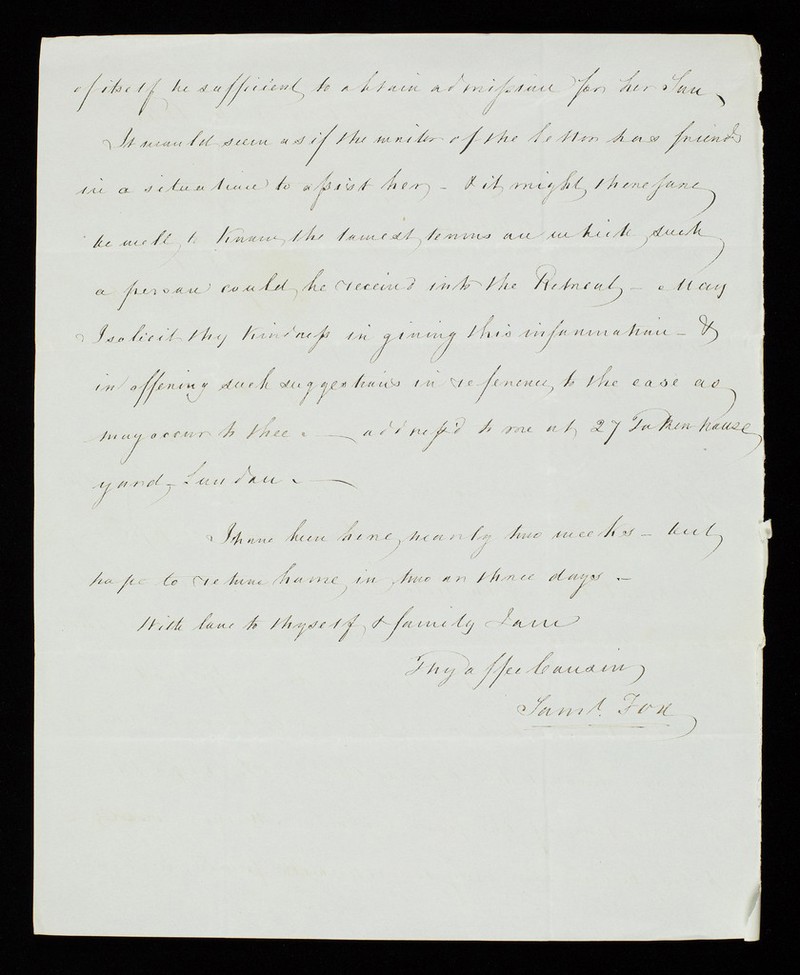 of itself be sufficient to obtain admission for her Son
It would seem as if the writer of the letter has friends
in a situation to assist her – & it might therefore
be well to know the lowest terms on which such
a person could be received into the Retreat – May
I solicit thy kindness in giving this information – &
in offering such suggestions in reference to the case as
may occur to thee. — address'd to me at 27 Tokenhouse
yard – London. —
I have been here nearly two weeks – but
hope to return home in two or three days –
With love to thyself & family I am
Thy affec Cousin
Saml. Fox